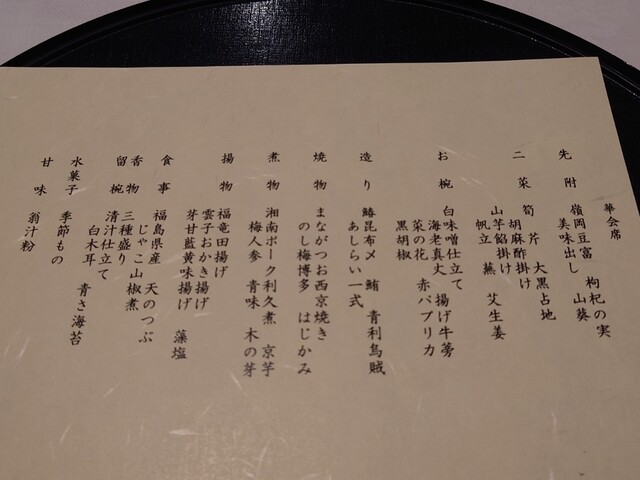 華会席
先附 嶺岡豆富 枸杞の実
美味出し 山葵
二菜 筍 芹 大黒占地
胡麻酢掛け
山芋餡掛け
帆立 蕪 艾生姜
お椀 白味噌仕立て 揚げ牛蒡
海老真丈 赤パプリカ
菜の花
黒胡椒
造り 鰆昆布〆 鮪 青利烏賊
あしらい一式
焼物 まながつお西京焼き
のし梅博多 はじかみ
煮物 湘南ポーク利久煮 京芋
梅人参 青味 木の芽
揚物 福竜田揚げ
雲子おかき揚げ
芽甘藍黄味揚げ 藻塩
食事 福島県産 天のつぶ
じゃこ山椒煮
香物 三種盛り
留椀 清汁仕立て 青さ海苔
白木耳
水菓子 季節もの
甘味 翁汁粉